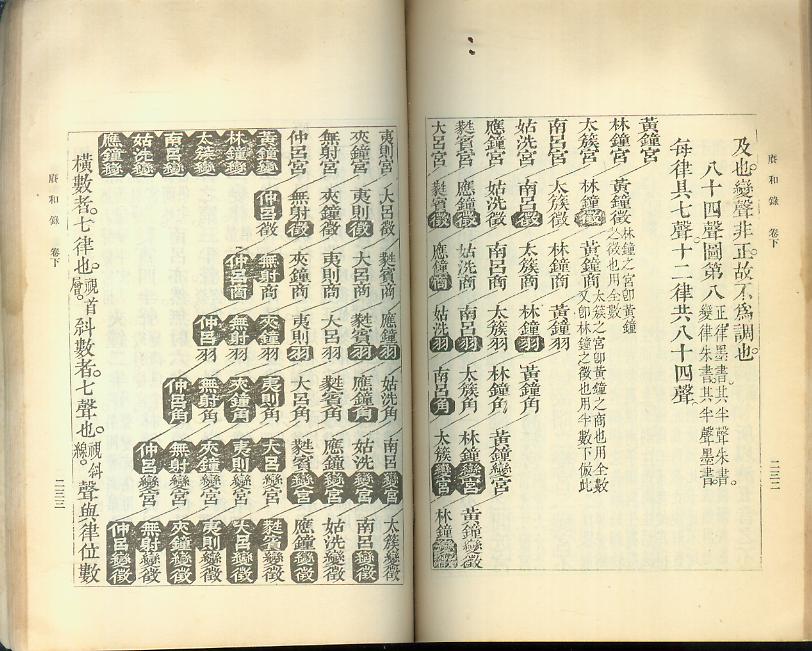 賡和錄 卷下 二三二
及也。變聲非正。故不爲調也。
八十四聲圖第八
正律墨書。其半聲朱書。
變律朱書。其半聲墨書。
每律具七聲。十二律共八十四聲。
黃鐘宮
林鐘宮 黃鐘徵 林鐘之宮卽黃鐘
之徵也用全數
太簇宮 林鐘徵 黃鐘商 太簇之宮卽黃鐘之商也用全數
又卽林鐘之徵也用半數下倣此
南呂宮 太簇徵 林鐘商 黃鐘羽
姑洗宮 南呂徵 太簇商 林鐘羽 黃鐘角
應鐘宮 姑洗徵 南呂商 太簇羽 林鐘角 黃鐘變宮
蕤賓宮 應鐘徵 姑洗商 南呂羽 太簇角 林鐘變宮 黃鐘變徵
大呂宮 蕤賓徵 應鐘商 姑洗羽 南呂角 太簇變宮 林鐘變徵
夷則宮 大呂徵 蕤賓商 應鐘羽 姑洗角 南呂變宮 太簇變徵
夾鐘宮 夷則徵 大呂商 蕤賓羽 應鐘角 姑洗變宮 南呂變徵
無射宮 夾鐘徵 夷則商 大呂羽 蕤賓角 應鐘變宮 姑洗變徵
仲呂宮 無射徵 夾鐘商 夷則羽 大呂角 蕤賓變宮 應鐘變徵
黃鐘變 仲呂徵 無射商 夾鐘羽 夷則角 大呂變宮 蕤賓變徵
林鐘變 仲呂商 無射羽 夾鐘角 夷則變宮 大呂變徵
太簇變 仲呂羽 無射角 夾鐘變宮 夷則變徵
南呂變 仲呂角 無射變宮 夾鐘變徵
姑洗變 仲呂變宮 無射變徵
應鐘變 仲呂變徵
橫數者。七律也。視首層。斜數者。七聲也。視斜線。聲與律位數
賡和錄 卷下 二三三